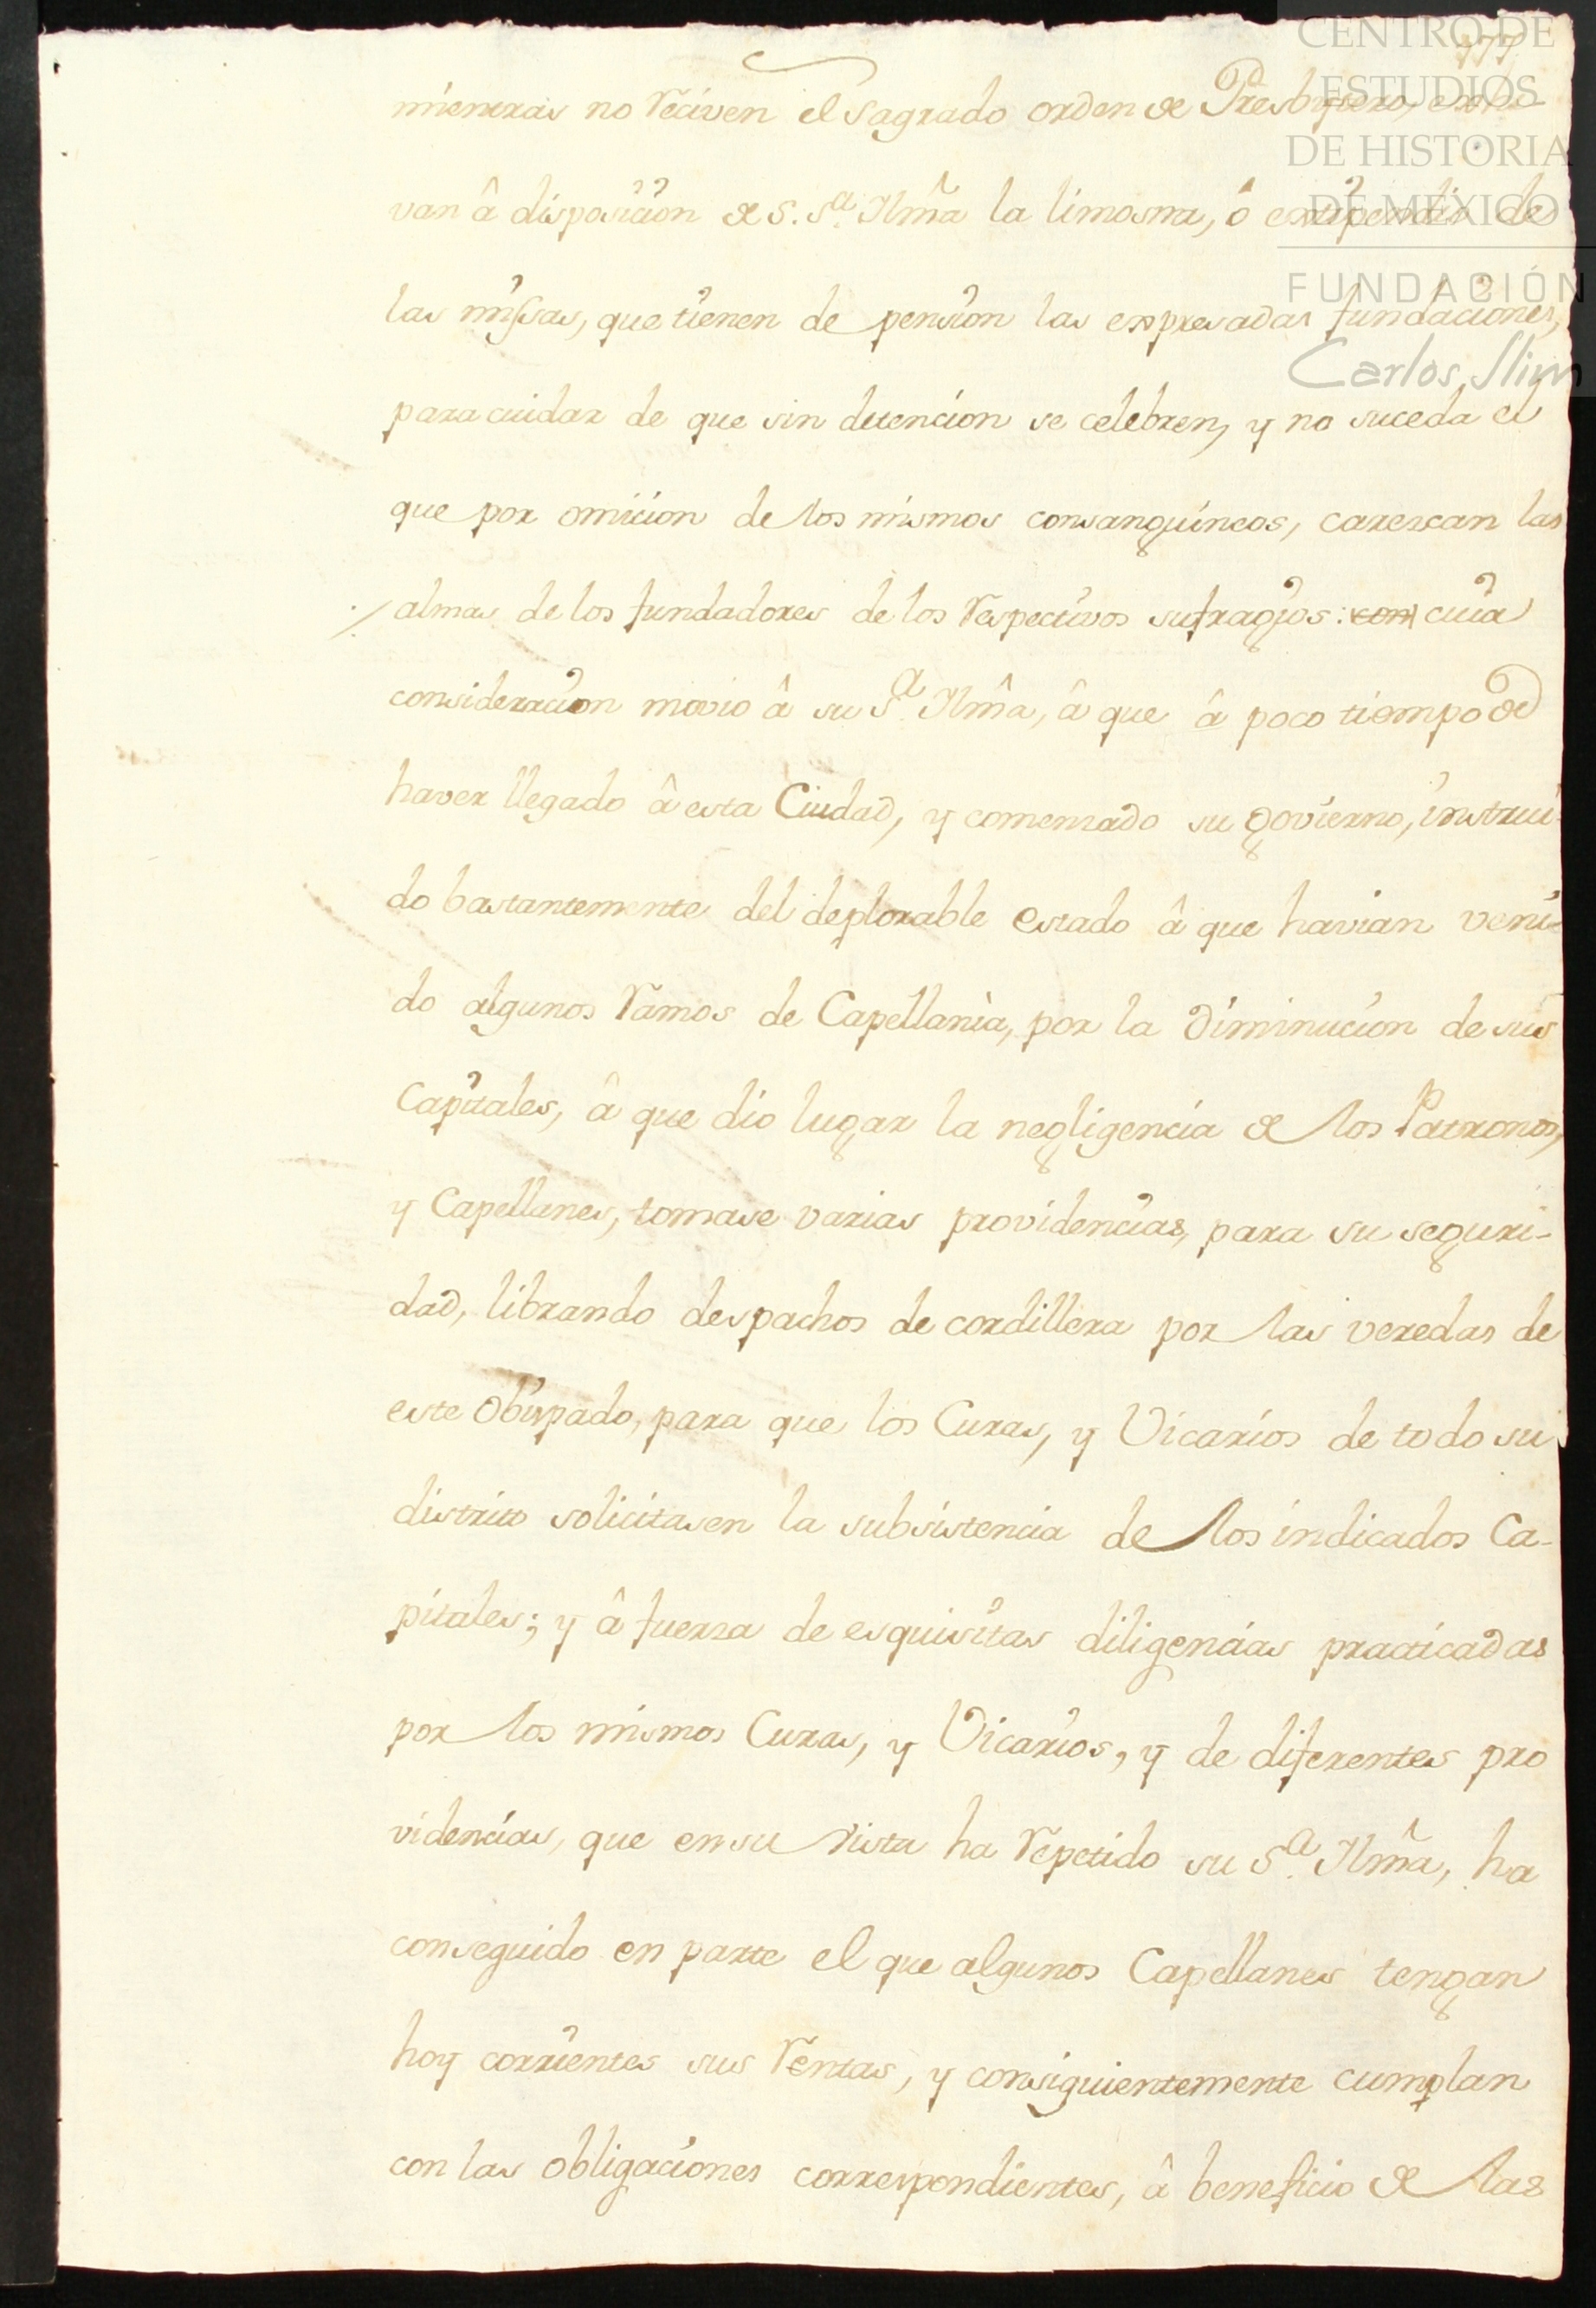 CENTRO DE
ESTUDIOS
DE HISTORIA
DE MÉXICO
FUNDACIÓN
Carlos Slim
mientras no reciven el sagrado orden de Presbytero,
van â disposicion de S. Sª Ilmâ la limosna, ô estipendio de
las missas, que tienen de pension las expresadas fundaciones,
para cuidar de que sin detencion se celebren, y no suceda el
que por omicion de los mismos consanguineos, carescan las
almas de los fundadores de los respectivos sufragios: con cuia
consideracion movio â su Sª Ilmâ, â que â poco tiempo de
haver llegado â esta Ciudad, y comensado su govierno, instrui-
do bastantemente del deplorable estado â que havian veni-
do algunos ramos de Capellanìa, por la diminucion de sus
Capitales, â que dio lugar la negligencia de los Patronos,
y Capellanes, tomase varias providencias, para su seguri-
dad, librando despachos de cordillera por las veredas de
este Obispado, para que los Curas, y Vicarios de todo su
distrito solicitasen la subsistencia de los indicados Ca-
pitales; y â fuerza de esquisitas diligencias practicadas
por los mismos Curas, y Vicarios, y de diferentes pro
videncias, que en su vista ha repetido su Sª Ilmâ, ha
conseguido en parte el que algunos Capellanes tengan
hoy corrientes sus rentas, y consiguientemente cumplan
con las obligaciones correspondientes, â beneficio de las